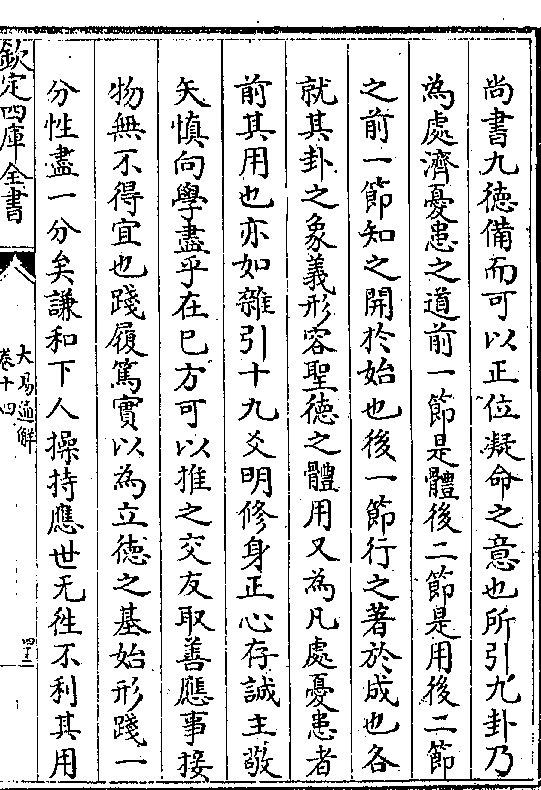 尚書九徳備而可以正位凝命之意也所引九卦乃
為處濟憂患之道前一節是體後二節是用後二節
之前一節知之開於始也後一節行之著於成也各
就其卦之象義形容聖德之體用又為凡處憂患者
前其用也亦如雜引十九爻明修身正心存誠主敬
矢慎向學盡乎在已方可以推之交友取善應事接
物無不得宜也踐履篤實以為立德之基始形踐一
分性盡一分矣謙和下人操持應世无徃不利其用
欽定四庫全書
大易通解
卷十四
四十三